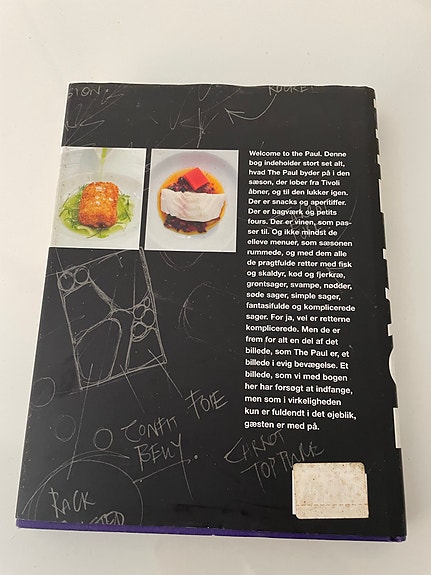 ROCKET
Welcome to the Paul. Denne
bog indeholder stort set alt,
hvad The Paul byder på i den
sæson, der løber fra Tivoli
åbner, og til den lukker igen.
Der er snacks og aperitiffer.
Der er bagværk og petits
fours. Der er vinen, som pas-
ser til. Og ikke mindst de
elleve menuer, som sæsonen
rummede, og med dem alle
de pragtfulde retter med fisk
og skaldyr, kød og fjerkræ,
grøntsager, svampe, nødder,
søde sager, simple sager,
fantasifulde og komplicerede
sager. For ja, vel er retterne
komplicerede. Men de er
frem for alt en del af det
billede, som The Paul er, et
billede i evig bevægelse. Et
billede, som vi med bogen
her har forsøgt at indfange,
men som i virkeligheden
kun er fuldendt i det øjeblik,
gæsten er med på.
CONFIT FOIE
BELLY.
CARROT
RACK